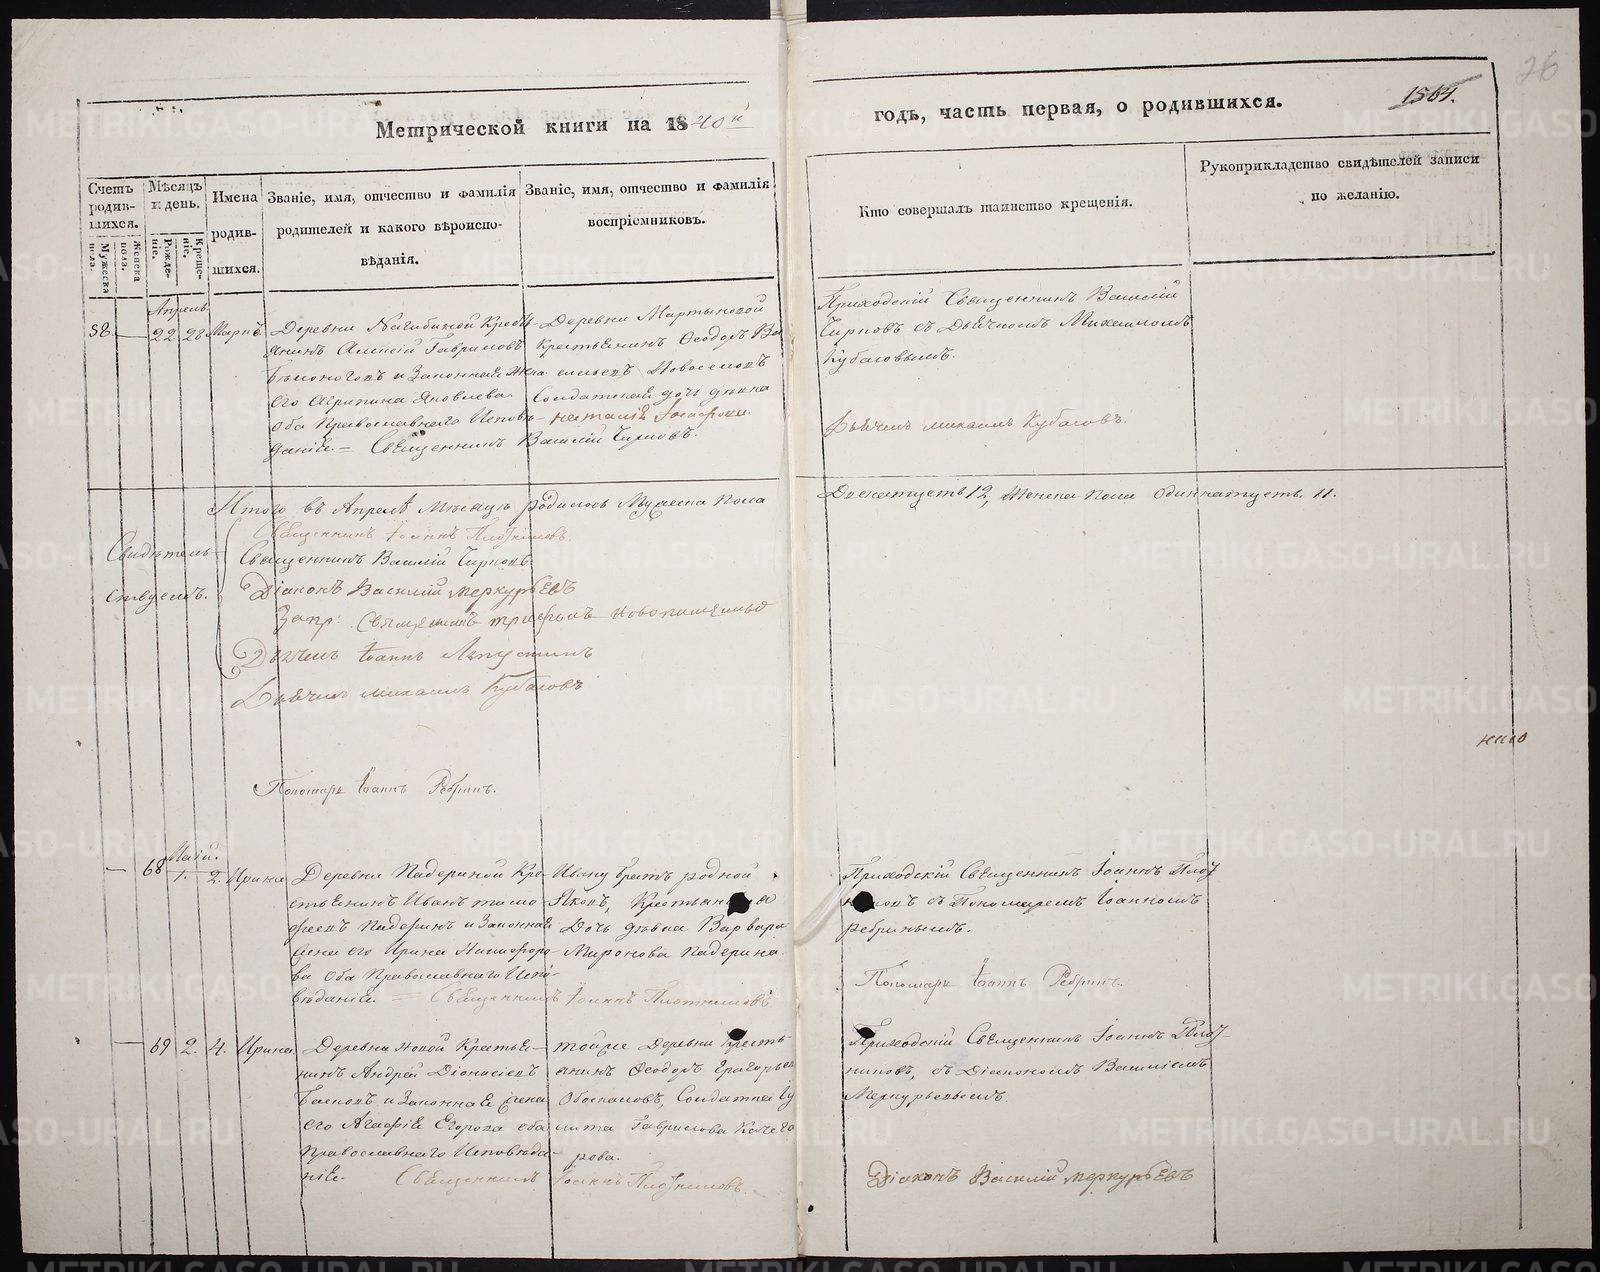 26
1564.
Метрической книги на 1840й
годъ, часть первая, о родившихся.
Счетъ родив-шихся.
Мужеска пола.
Женска пола.
Мѣсяцъ и день.
Рожде-ніе.
Креще-ніе.
Имена родив-шихся.
Званіе, имя, отчество и фамилія
родителей и какого вѣроиспо-
вѣданія.
Званіе, имя, отчество и фамилія
воспріемниковъ.
Кто совершалъ таинство крещенія.
Рукоприкладство свидѣтелей записи
по желанію.
Апрель
58. 22 28 Маркъ
Деревни Нагибиной Кресть-
янинъ Алексій Гавриловъ
Бѣлоноговъ и Законная Жена
его Агрипина Яковлева.
Оба Православнаго Исповѣ-
данія. = Священникъ Василій Чирковъ.
Деревни Мартыновой
Крестьянинъ Ѳеодоръ Ва
сильевъ Новоселовъ
Солдатская дочь дѣвка
Наталія
Приходскій Священникъ Василій
Чирковъ съ Дьячкомъ Михаиломъ
Кубасовымъ.
Дьячекъ Михаилъ Кубасовъ.
Итого въ Апрелѣ Мѣсяцѣ родилось Мужеска Пола
Двенатцеть 12, Женска Пола Одиннатцеть 11.
Свидѣтель-
ствуемъ.
Священникъ Іоаннъ Плотниковъ.
Священникъ Василій Чирковъ
Діаконъ Василій Меркурьевъ
Запр: Священникъ Трифонъ
Дьячекъ Іоаннъ Лапустинъ
Дьячекъ Михаилъ Кубасовъ
Пономарь Іоаннъ Ребринъ.
Маій.
68 1. 2. Ирина
Деревни Падериной Кре-
стьянинъ Иванъ Тимо-
феевъ Падеринъ и Законная
Жена его Ирина Никифоро-
ва Оба Православнаго Испо-
вѣданія. = Священникъ Іоаннъ Плотниковъ
Ивану братъ родной
Яковъ, Крестьянская
Дочь дѣвка Варвара
Миронова Падерина.
Приходскій Священникъ Іоаннъ Плот
никовъ съ Пономаремъ Іоанномъ
Ребринымъ.
Пономарь Іоаннъ Ребринъ.
69 2. 4. Ирина
Деревни Новой Крестья-
нинъ Андрей Діонисіевъ
Басковъ и Законная Жена
его Агафія Егорова оба
Православнаго Исповѣда-
нія. Священникъ Іоаннъ Плотниковъ.
Тойже Деревни Кресть-
янинъ Ѳеодоръ Григорьевъ
Обоскаловъ, Солдатка Іу
лита Гаврилова Качего
рова.
Приходскій Священникъ Іоаннъ Плот
никовъ, съ Діакономъ Василіемъ
Меркурьевымъ.
Діаконъ Василій Меркурьевъ